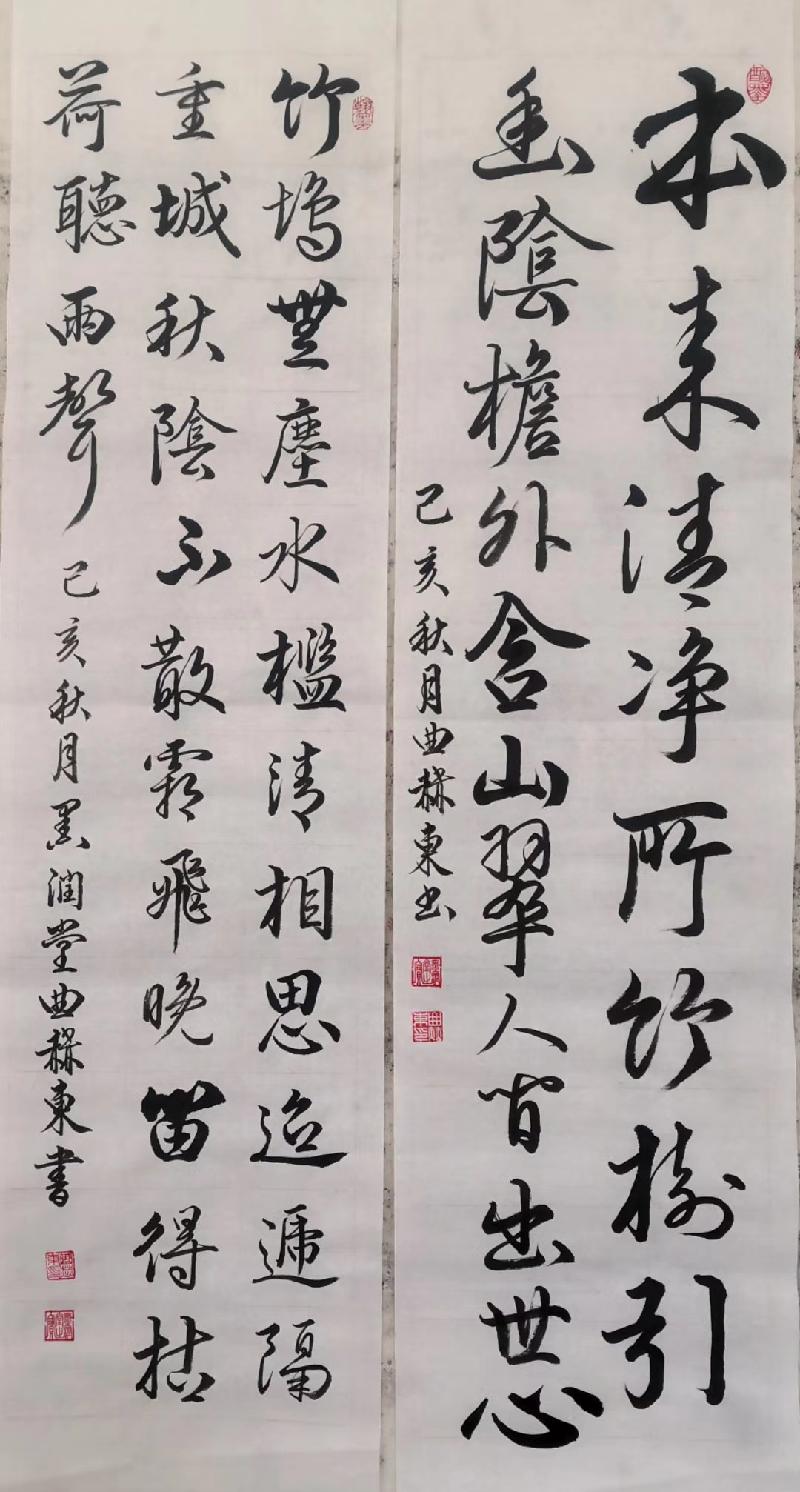 本来清净所竹树引
幽陰檐外含山翠人间出世心
己亥秋月曲東书
竹塢無塵水檻清相思迢遞隔
重城秋陰不散霜飛晚留得枯
荷聽雨聲
己亥秋月墨润堂曲東書